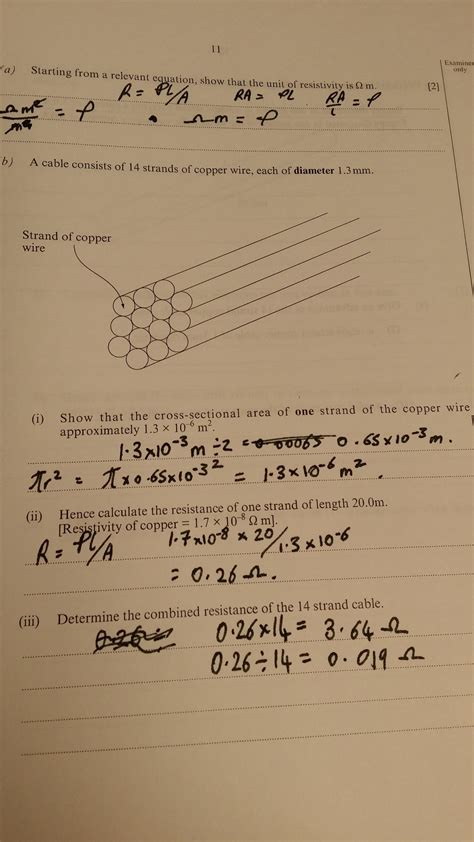 11
Examiner
only
a) Starting from a relevant equation, show that the unit of resistivity is Ω m. [2]
R = ρL/A RA = ρL RA/L = ρ
Ωm²/m = ρ • Ωm = ρ
b) A cable consists of 14 strands of copper wire, each of diameter 1.3mm.
Strand of copper
wire
(i) Show that the cross-sectional area of one strand of the copper wire
approximately 1.3 × 10⁻⁶ m².
1.3×10⁻³ m ÷2 = 0.00065 0.65×10⁻³ m.
πr² = π × 0.65×10⁻³² = 1.3×10⁻⁶ m².
(ii) Hence calculate the resistance of one strand of length 20.0m.
[Resistivity of copper = 1.7 × 10⁻⁸ Ω m].
R = ρL/A 1.7×10⁻⁸ × 20/1.3×10⁻⁶
= 0.26 Ω.
(iii) Determine the combined resistance of the 14 strand cable.
0.26×14 = 3.64 Ω
0.26÷14 = 0.019 Ω